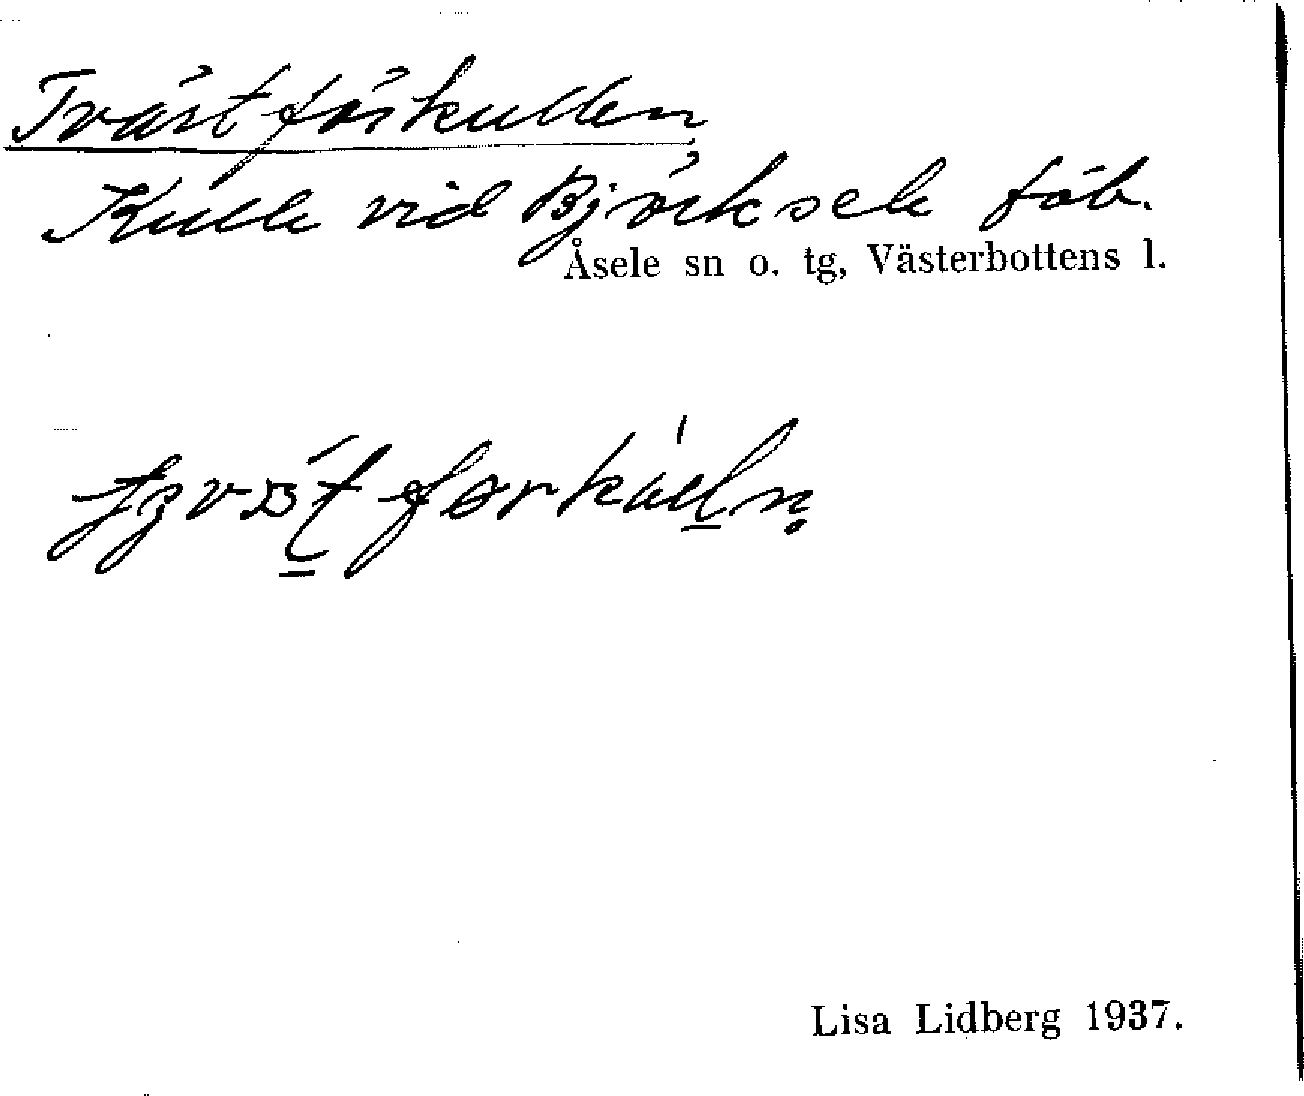 Tvärtförkullen
Kulle vid Björksele fäb.
Åsele sn o. tg, Västerbottens l.
Lisa Lidberg 1937.